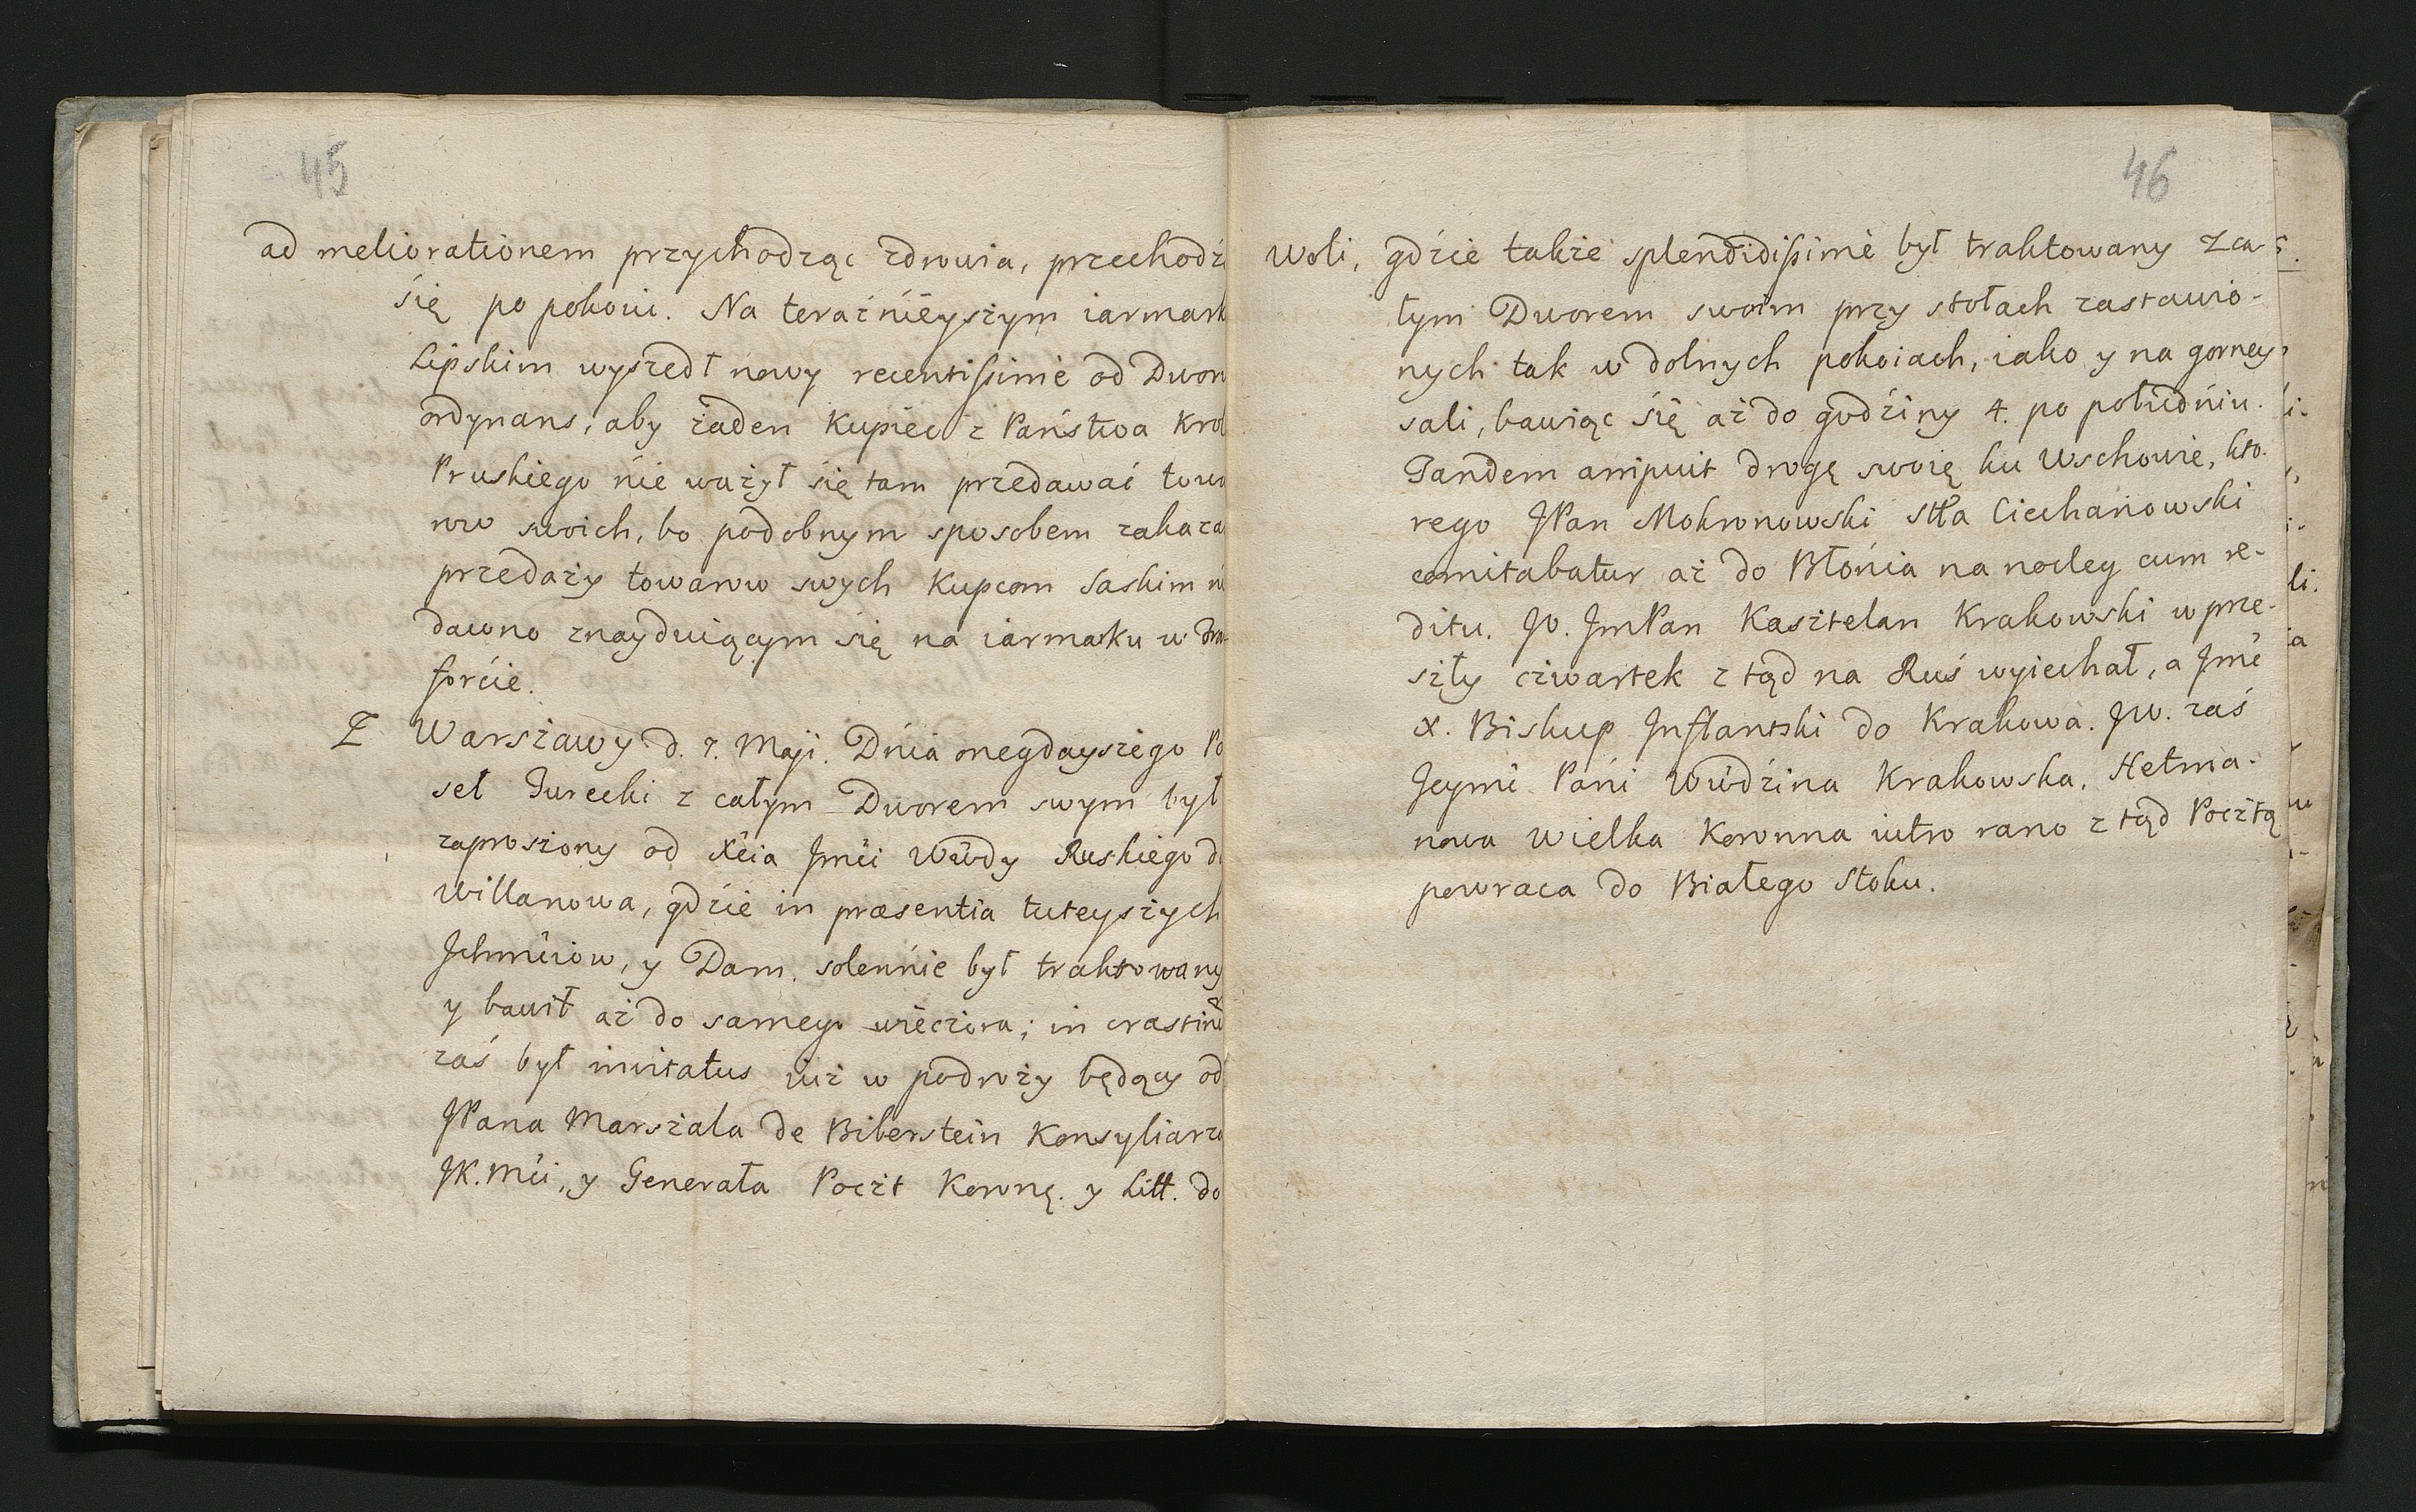 45
ad meliorationem przychodząc zdrowia, przechodzi
się po pokoiu. Na teraźnieyszym iarmark
Lipskim wyszedł nowy recentissime od Dworu
ordynans, aby żaden Kupiec z Państwa Krol
Pruskiego nie ważył się tam przedawać towa
row swoich, bo podobnym sposobem zakaza
przedaży towarow swych Kupcom Saskim nie
dawno znayduiącym się na iarmarku w Fran
forcie.
Z Warszawy d. 7. Maji. Dnia onegdayszego Po
seł Turecki z całym Dworem swym był
zaproszony od Xcia Jmci Wwdy Ruskiego do
Willanowa, gdzie in præsentia tuteyszych
Jchmciow, y Dam. solennie był traktowany
y bawił aż do samego wieczora; in crastinũ
zaś był invitatus iuż w podroży będący od
JPana Marszala de Biberstein Konsyliarza
JK. Mci, y Generała Poczt Koronę. y Litt. do
46
Woli, gdzie także splendidissime był traktowany z ca-
łym Dworem swoim przy stołach zastawio-
nych tak w dolnych pokoiach, iako y na gorney
sali, bawiąc się aż do godziny 4. po południu.
Tandem arripuit drogę swoię ku Wschowie, kto-
rego JPan Mokronowski Stta Ciechanowski
comitabatur aż do Błonia na nocleg cum re-
ditu. Jw. JmPan Kasztelan Krakowski w prze-
szły czwartek z tąd na Ruś wyiechał, a Jmć
X. Biskup Inflantski do Krakowa. JW. zaś
Jeymć Pani Wwdzina Krakowska, Hetma-
nowa Wielka Koronna iutro rano z tąd Pocztą
powraca do Białego Stoku.